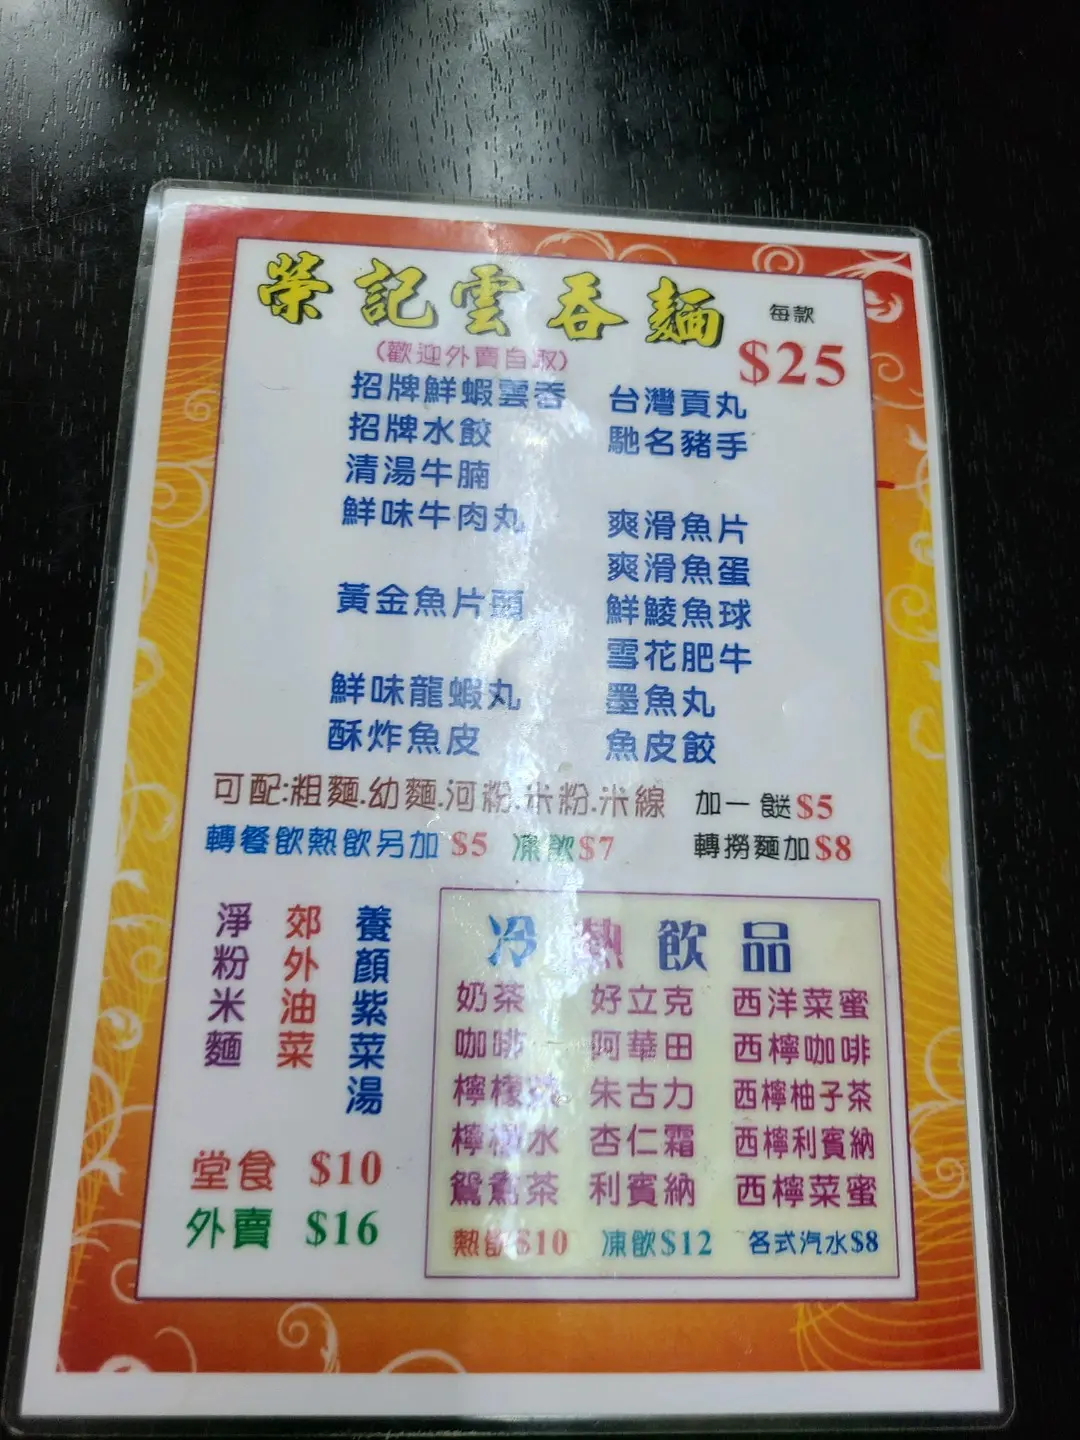 榮記雲吞麵
每款
$25
(歡迎外賣自取)
招牌鮮蝦雲吞
台灣貢丸
招牌水餃
馳名豬手
清湯牛腩
鮮味牛肉丸
爽滑魚片
爽滑魚蛋
黃金魚片頭
鮮鯪魚球
雪花肥牛
鮮味龍蝦丸
墨魚丸
酥炸魚皮
魚皮餃
可配:粗麵.幼麵.河粉.米粉.米線
加一餸$5
轉餐飲熱飲另加 $5 凍飲$7
轉撈麵加$8
淨粉米麵
郊外油菜
養顏紫菜湯
堂食 $10
外賣 $16
冷熱飲品
奶茶 好立克 西洋菜蜜
咖啡 阿華田 西檸咖啡
檸檬 朱古力 西檸柚子茶
檸檬水 杏仁霜 西檸利賓納
鴛鴦茶 利賓納 西檸菜蜜
熱飲$10 凍飲$12 各式汽水$8